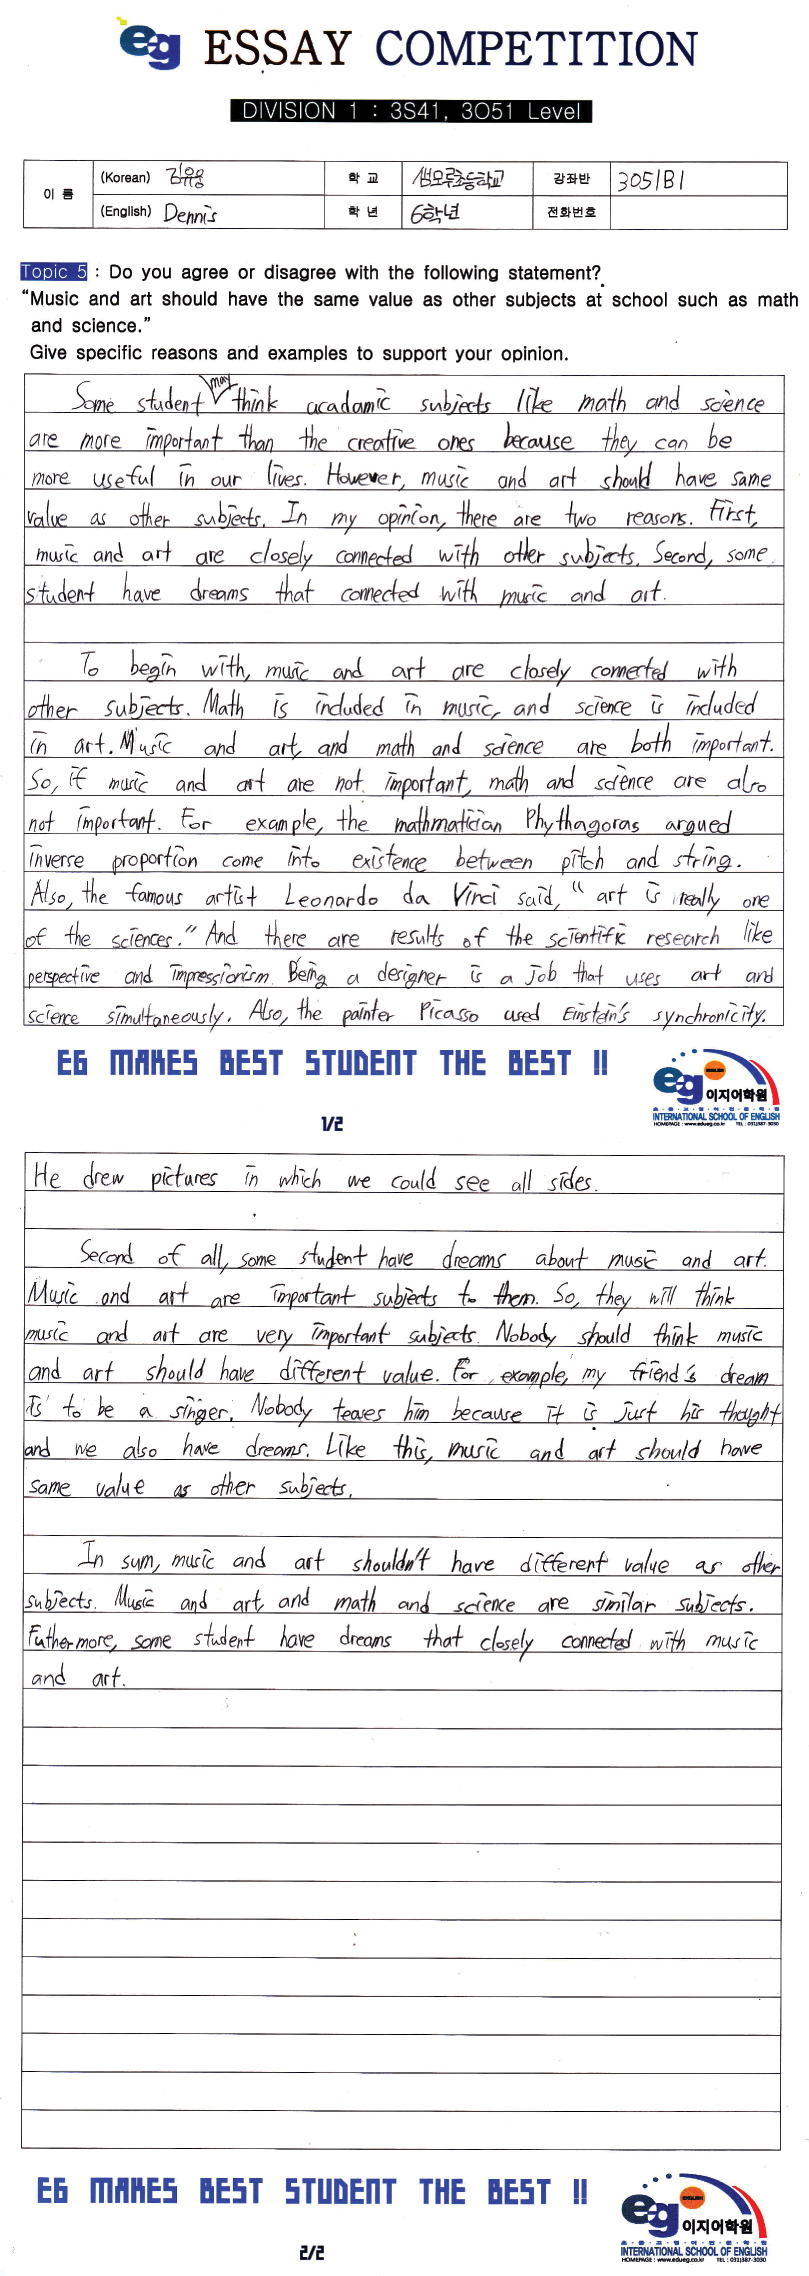 eg ESSAY COMPETITION
DIVISION 1 : 3S41, 3O51 Level
이 름 (Korean) 김유웅 학 교 샘모루초등학교 강좌반 3051B1
(English) Dennis 학 년 6학년 전화번호
Topic 5 : Do you agree or disagree with the following statement?
“Music and art should have the same value as other subjects at school such as math
and science.”
Give specific reasons and examples to support your opinion.
Some student may think acadamic subjects like math and science
are more important than the creative ones because they can be
more useful in our lives. However, music and art should have same
value as other subjects. In my opinion, there are two reasons. First,
music and art are closely connected with other subjects. Second, some
student have dreams that connected with music and art.
To begin with, music and art are closely connected with
other subjects. Math is included in music, and science is included
in art. Music and art, and math and science are both important.
So, if music and art are not important, math and science are also
not important. For example, the mathmatician Phythagoras argued
inverse proportion come into existence between pitch and string.
Also, the famous artist Leonardo da Vinci said, “ art is really one
of the sciences.” And there are results of the scientific research like
perspective and impressionism. Being a designer is a job that uses art and
science simultaneously. Also, the painter Picasso used Einstein's synchronicity.
EG MAKES BEST STUDENT THE BEST !!
eg ENGLISH 이지어학원
초·중·고영어전문학원
INTERNATIONAL SCHOOL OF ENGLISH
HOMEPAGE : www.edueg.co.kr TEL : 031)387-3030
1/2
He drew pictures in which we could see all sides.
Second of all, some student have dreams about music and art.
Music and art are important subjects to them. So, they will think
music and art are very important subjects. Nobody should think music
and art should have different value. For example, my friend's dream
is to be a singer. Nobody teases him because it is just his thought
and we also have dreams. Like this, music and art should have
same value as other subjects.
In sum, music and art shouldn't have different value as other
subjects. Music and art, and math and science are similar subjects.
Futhermore, some student have dreams that closely connected with music
and art.
EG MAKES BEST STUDENT THE BEST !!
eg ENGLISH 이지어학원
초·중·고영어전문학원
INTERNATIONAL SCHOOL OF ENGLISH
HOMEPAGE : www.edueg.co.kr TEL : 031)387-3030
2/2